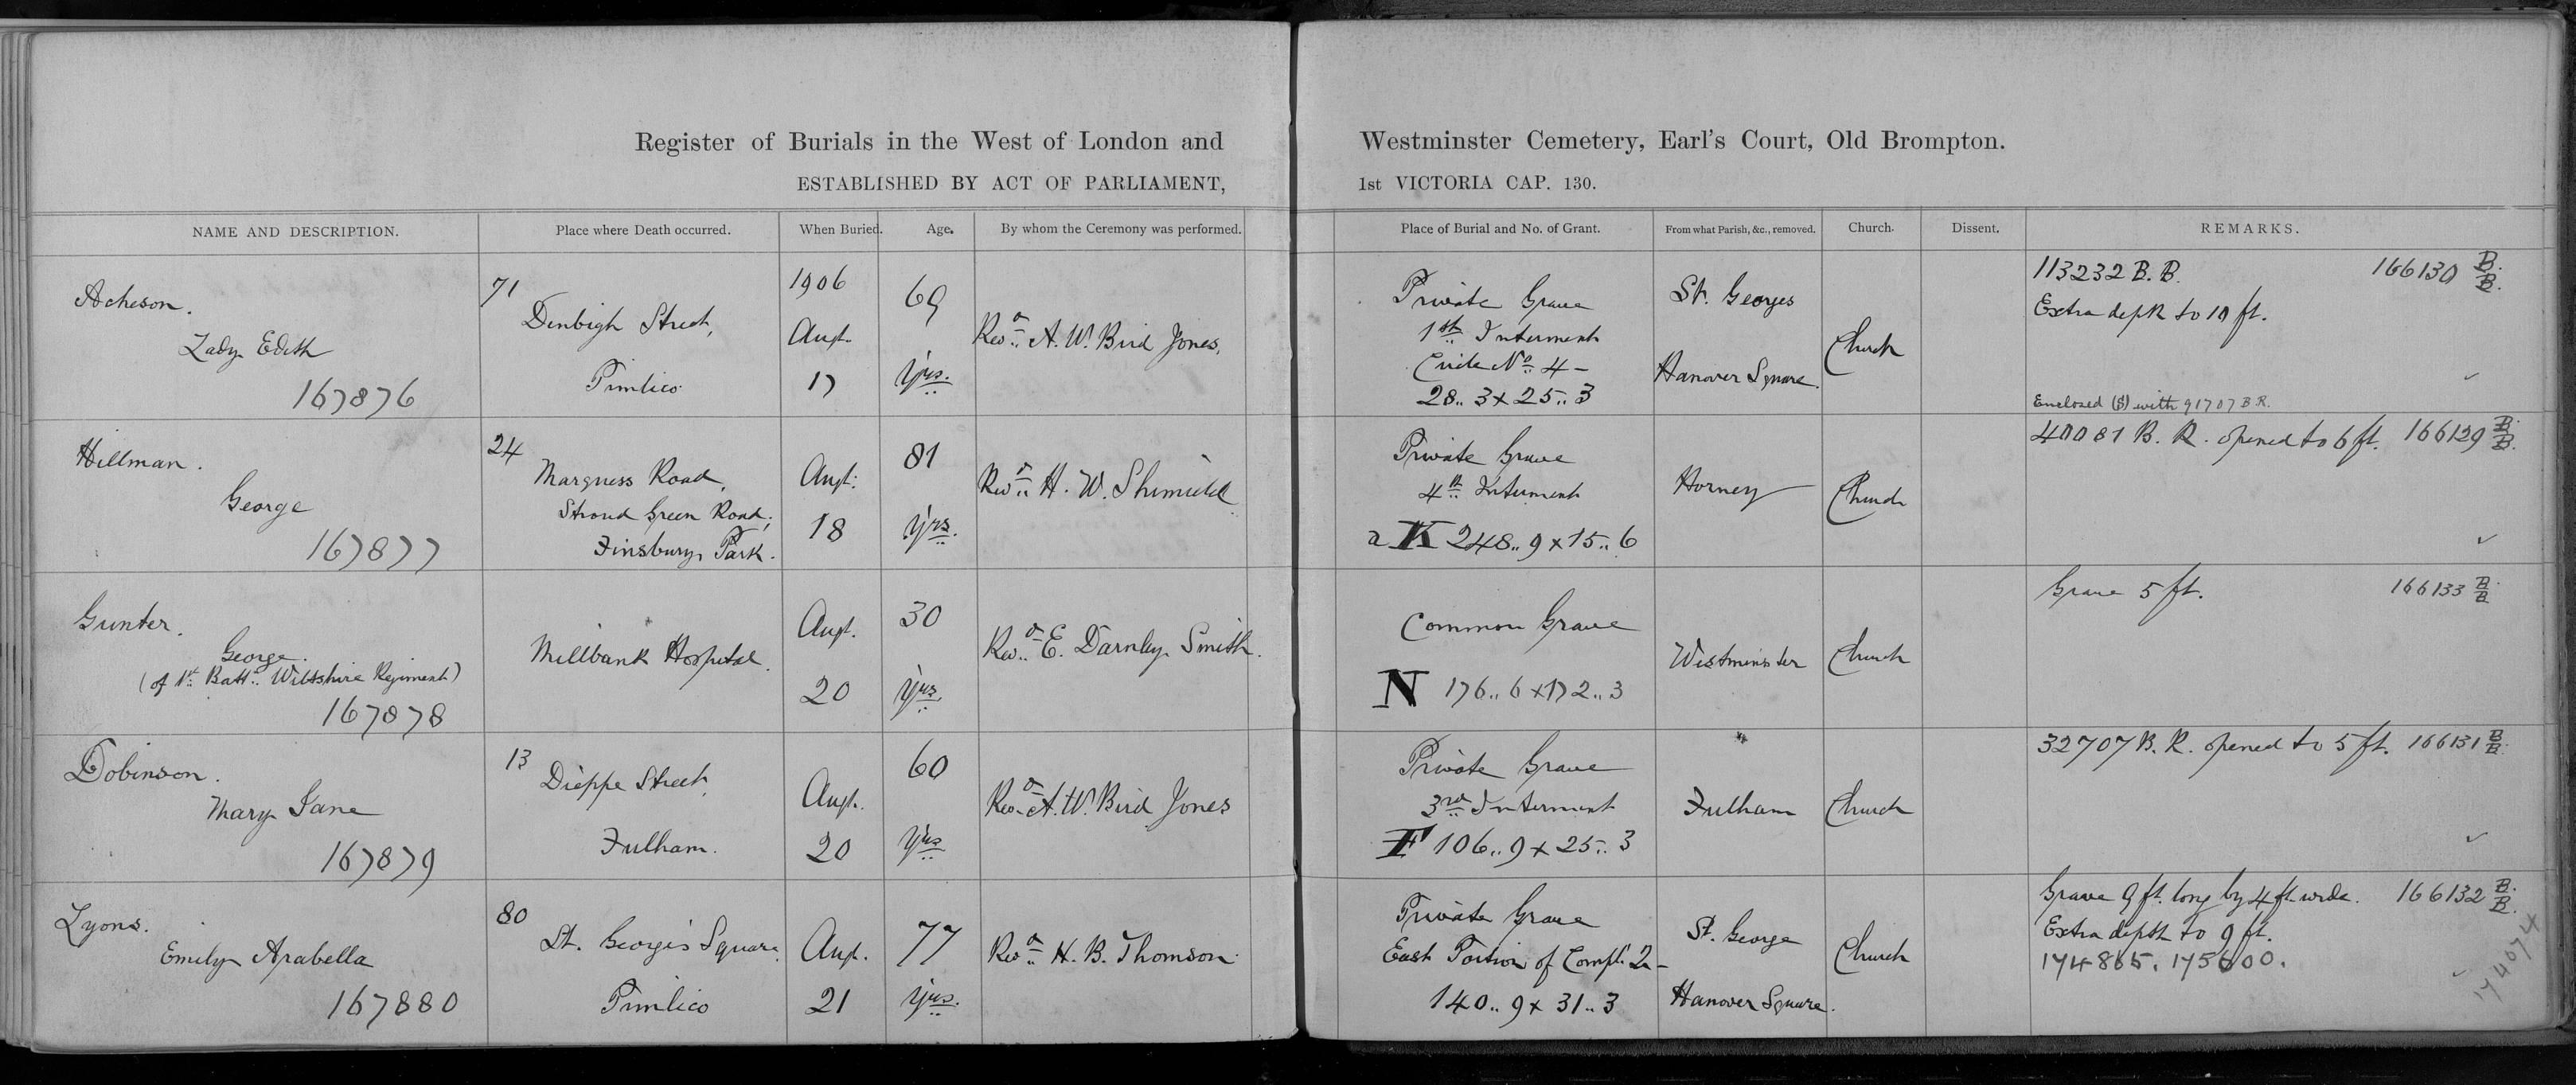 Register of Burials in the West of London and Westminster Cemetery, Earl's Court, Old Brompton.
ESTABLISHED BY ACT OF PARLIAMENT, 1st VICTORIA CAP. 130.
NAME AND DESCRIPTION. Place where Death occurred. When Buried. Age. By whom the Ceremony was performed. Place of Burial and No. of Grant. From what Parish, &c., removed. Church. Dissent. REMARKS.
Acheson.
Lady Edith
167876
71
Denbigh Street,
Pimlico
1906
Augt.
17
69
Yrs.
Revd. A. W. Bird Jones,
Private Grave
1st Interment
Circle No. 4 -
28.. 3 x 25.. 3
St. Georges
Hanover Square.
Church
113232 B. B. 166130 B. B.
Extra depth to 10 ft.
Enclosed (S) with 91707 B R.
Hillman.
George
167877
24
Marquess Road,
Stroud Green Road,
Finsbury Park.
Augt.
18
81
Yrs.
Revd. H. W.
Private Grave
4th Interment
a K 248.. 9 x 15.. 6
Hornsey
Church
40081 B. R. opened to 6 ft. 166129 B. B.
Gunter.
George.
(of 1st Battn. Wiltshire Regiment)
167878
Millbank Hospital.
Augt.
20
30
Yrs.
Revd. E. Darnley Smith.
Common Grave
N 176.. 6 x 172.. 3
Westminster
Church
Grave 5 ft. 166133 B. B.
Dobinson.
Mary Jane
167879
13
Dieppe Street,
Fulham.
Augt.
20
60
Yrs.
Revd. A. W. Bird Jones
Private Grave
3rd Interment
F 106.. 9 x 25.. 3
Fulham
Church
32707 B. R. opened to 5 ft. 166131 B. B.
Lyons.
Emily Arabella
167880
80
St. George's Square,
Pimlico
Augt.
21
77
Yrs.
Revd. H. B. Thomson.
Private Grave
East Portion of Compt. 2 -
140.. 9 x 31.. 3
St. George
Hanover Square.
Church
Grave 9 ft. long by 4 ft. wide. 166132 B. B.
Extra depth to 9 ft.
174865. 175600.
174074